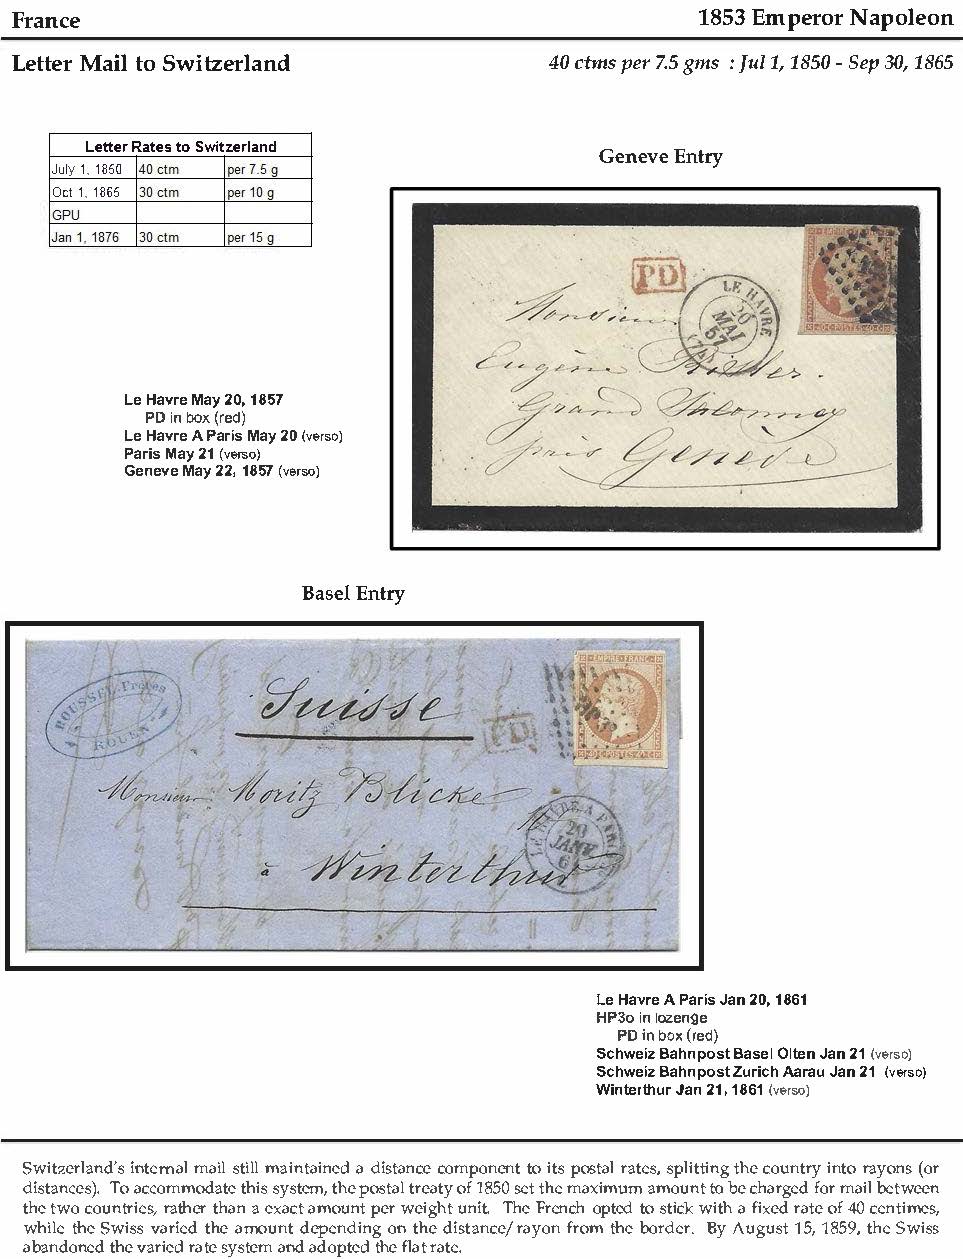 France
1853 Emperor Napoleon
Letter Mail to Switzerland
40 ctms per 7.5 gms : Jul 1, 1850 - Sep 30, 1865
Letter Rates to Switzerland
July 1, 1850 40 ctm per 7.5 g
Oct 1, 1865 30 ctm per 10 g
GPU
Jan 1, 1876 30 ctm per 15 g
Geneve Entry
PD
LE HAVRE
20
MAI
57
(74)
40·C·POSTES·40·C
Monsieur
Eugène
Grand
près Genève
Le Havre May 20, 1857
PD in box (red)
Le Havre A Paris May 20 (verso)
Paris May 21 (verso)
Geneve May 22, 1857 (verso)
Basel Entry
ROUSSEL Frères
ROUEN
Suisse
PD
EMPIRE FRANC
40·C·POSTES·40·C
Monsieur Moritz Blicke
LE HAVRE A PARIS
20
JANV
à Winterthur
Le Havre A Paris Jan 20, 1861
HP3o in lozenge
PD in box (red)
Schweiz Bahnpost Basel Olten Jan 21 (verso)
Schweiz Bahnpost Zurich Aarau Jan 21 (verso)
Winterthur Jan 21, 1861 (verso)
Switzerland's internal mail still maintained a distance component to its postal rates, splitting the country into rayons (or
distances). To accommodate this system, the postal treaty of 1850 set the maximum amount to be charged for mail between
the two countries, rather than a exact amount per weight unit. The French opted to stick with a fixed rate of 40 centimes,
while the Swiss varied the amount depending on the distance/rayon from the border. By August 15, 1859, the Swiss
abandoned the varied rate system and adopted the flat rate.